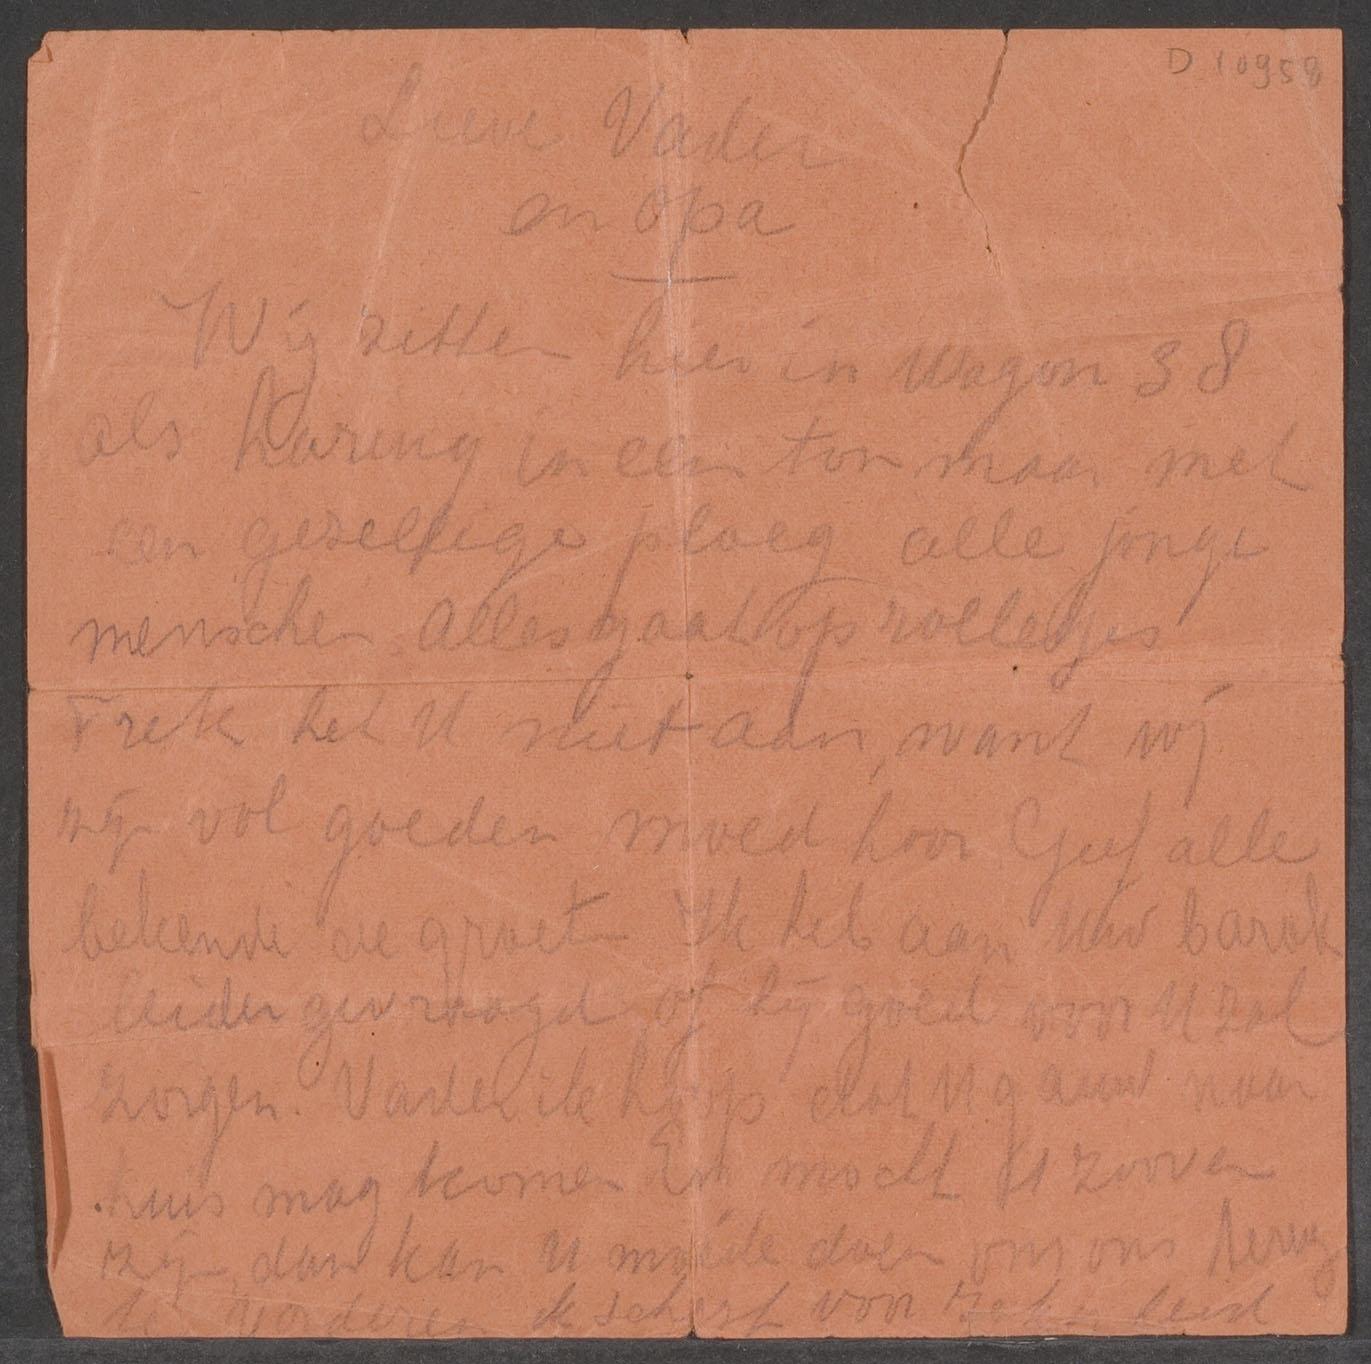 D 10958
Lieve Vader
en opa
Wij zitten hier in Wagon 38
als haring in een ton maar met
een gezellige ploeg alle jonge
menschen. Alles gaat op rolletjes
Trek het U niet aan, want wij
zijn vol goeden moed hoor Geef alle
bekende de groet Ik heb aan Uw barak
leider gevraagd of hij goed voor U zal
zorgen. Vader ik hoop dat U gauw naar
huis mag komen En mocht U zoover
zijn, dan kan U moeite doen om ons terug
te vorderen ik schryf voor